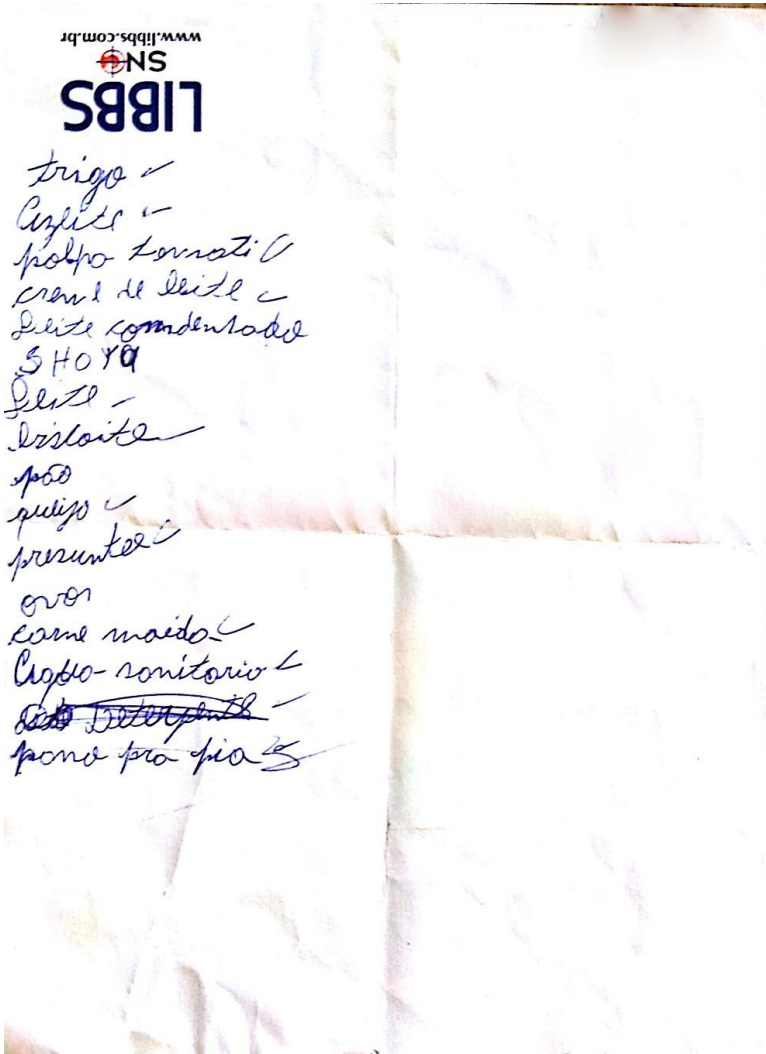 www.libbs.com.br
SNC
LIBBS
trigo
Azeite
polpa tomati
creme de leite
Leite comdensado
SHOYO
Leite
biscoito
pão
queijo
presunto
ovos
carne moida
Papel sanitario
Detergente
pano pra pia